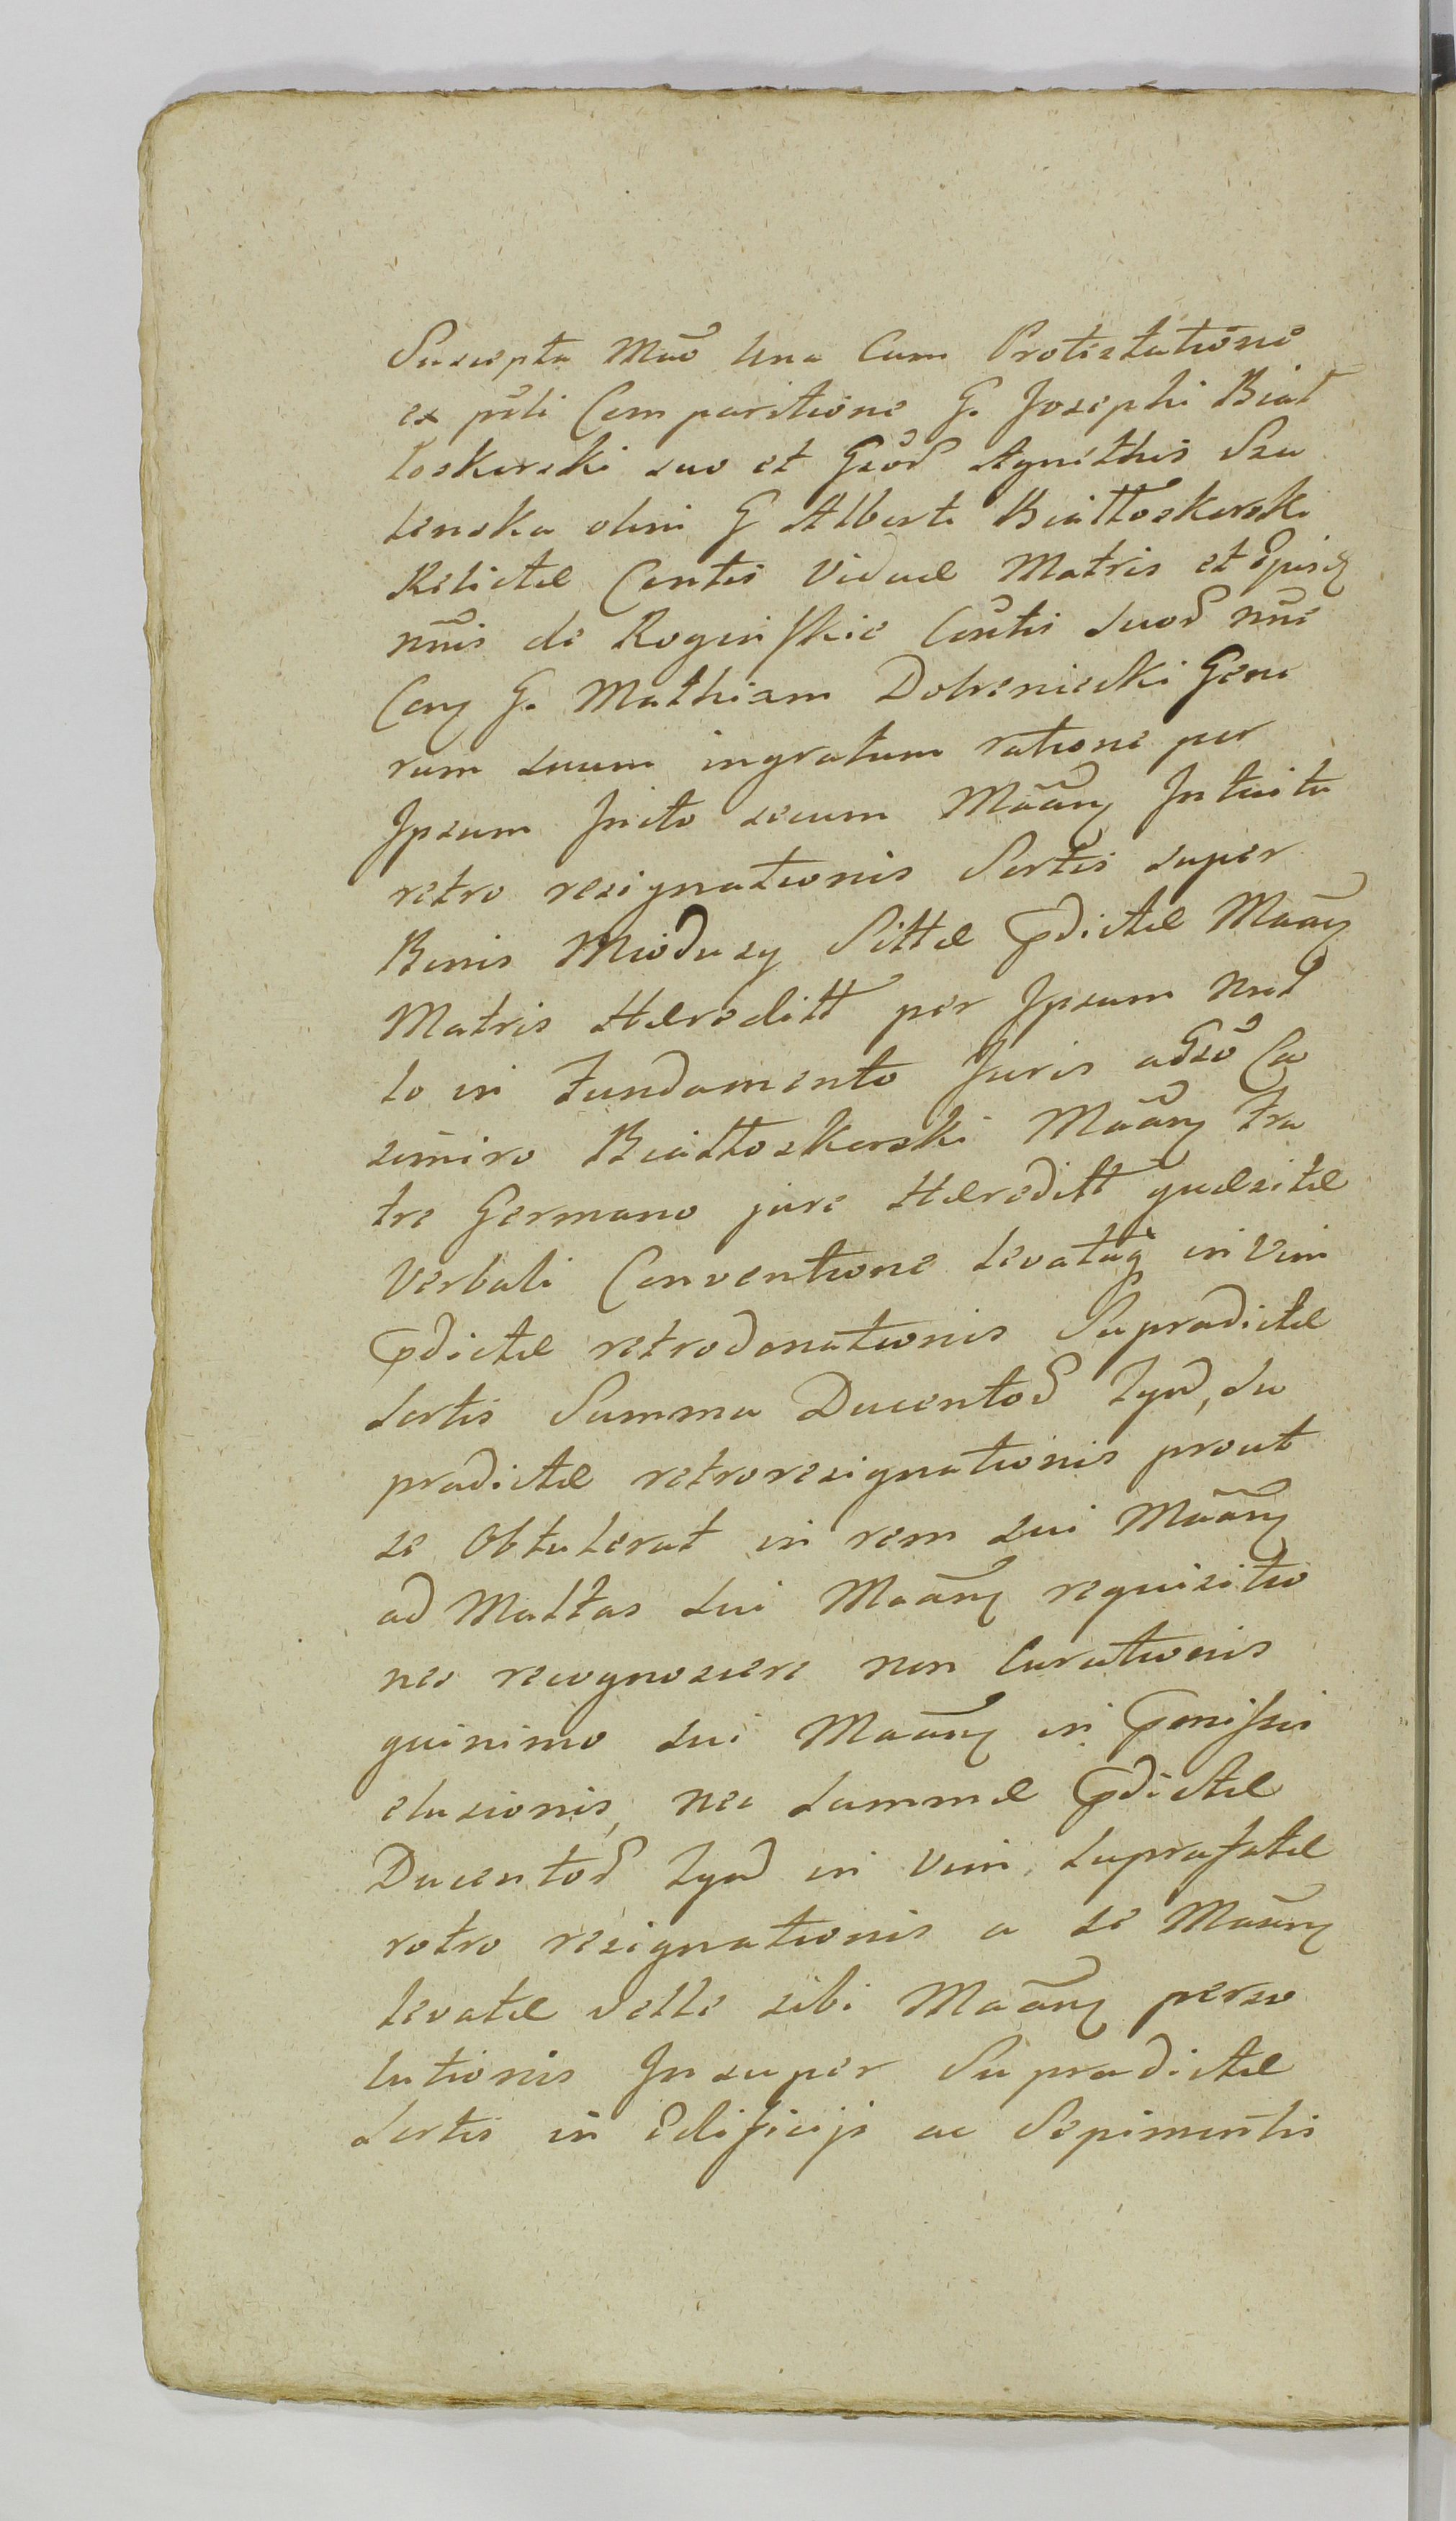 Suscepta Mão Una Cum Protestatione
ex pñti Comparitione G. Josephi Biał
łoskorski suo et Gsoȓ Agnethis Szu
lenska olim G Alberti Białłoskorski
Relictæ Contis Viduæ Matris et
nñis de Rogińskie Cõntis suoȓ nñe
Con G. Mathiam Dobreniecki Gene
rum suum ingratum ratione per
Ipsum Inito secum Mãan Intuitu
retro resignationis Sortis super
Bonis Miodusy Sittæ pdictæ Mãan
Matris Hæreditt per Ipsum Nul
lo in Fundamento Juris a Gsõ Ca
simiro Białłoskorski Mãan Fra
tre Germano jure Hæreditt quæsitæ
Verbali Conventione levataq in Vim
pdictæ retrodonationis Supradictæ
Sortis Summa Ducentoȓ , Su
pradictæ retroresignationis prout
se Obtulerat in rem sui Mãan
ad Multas sui Mãan requisitio
nes recognoscere non Curationis
quinimo sui Mãan in
elusionis, nec Summæ pdictæ
Ducentoȓ in Vim suprafatæ
retro resignationis a se Mãan
levatæ velle sibi Mãan perso
lutionis Insuper Supradictæ
Sortis in Edificijs ac Sepimentis